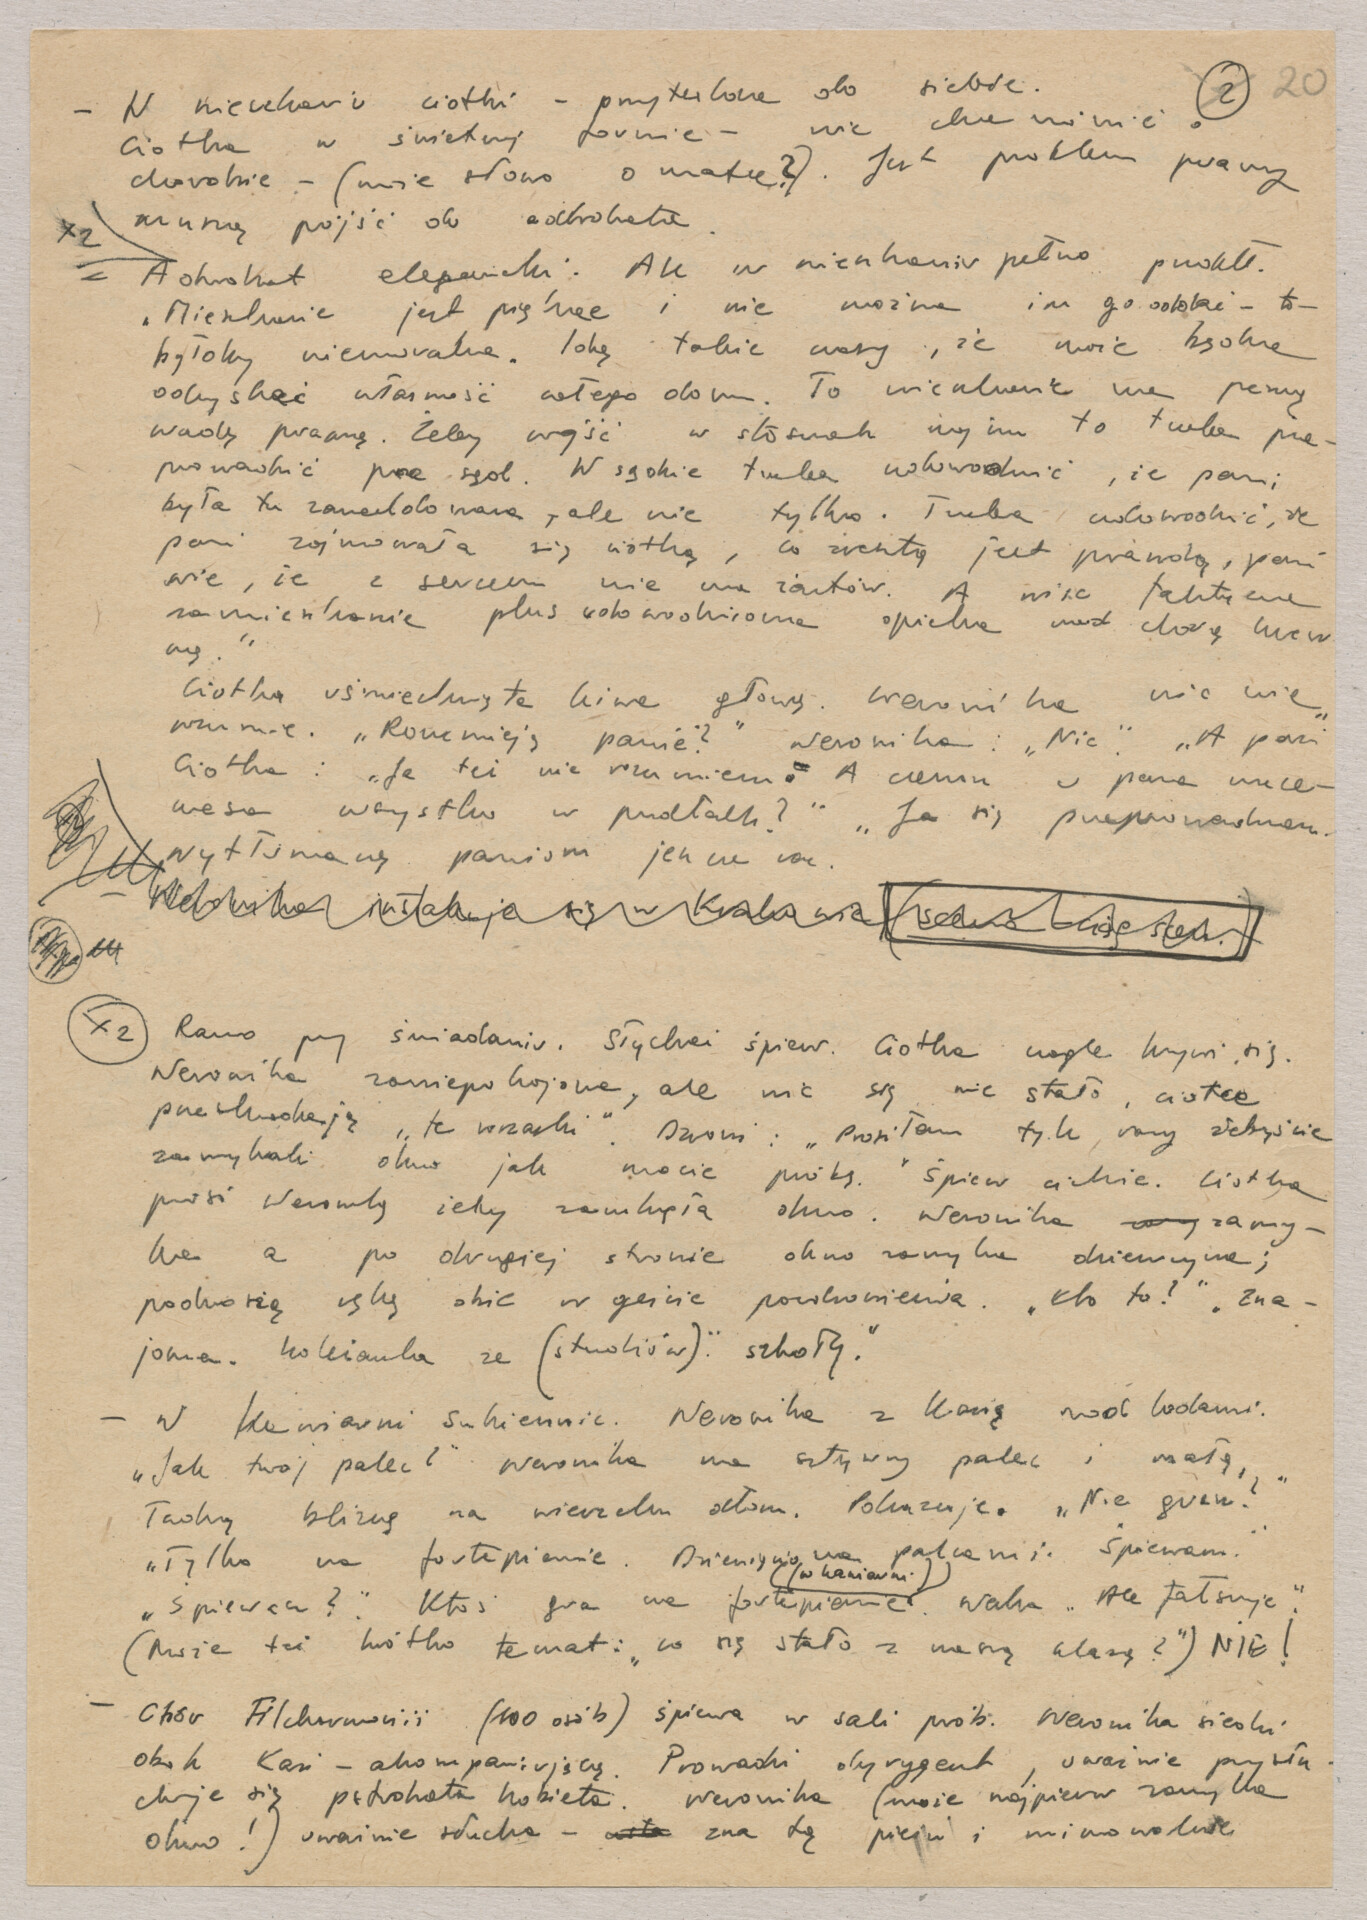 ② 20
- W mieszkaniu ciotki - przytulone do siebie.
Ciotka w świetnej formie - nie chce mówić o
chorobie - (może słowo o matce?). Jest problem prawny
muszą pójść do adwokata.
X2
= Adwokat elegancki. Ale w mieszkaniu pełno pudeł.
„Mieszkanie jest piękne i nie można im go oddać - to
byłoby niemoralne. Idą takie czasy, że może będzie
odzyskać własność całego domu. To mieszkanie ma pewną
wadę prawną. Żeby wejść w stosunek najmu to trzeba prze-
prowadzić przez sąd. W sądzie trzeba udowodnić, że pani
była tu zameldowana, ale nie tylko. Trzeba udowodnić, że
pani zajmowała się ciotką, co zresztą jest prawdą, pani
wie, że z sercem nie ma żartów. A więc faktyczne
zamieszkanie plus udowodniona opieka nad chorą krew
ną."
Ciotka uśmiechnięta kiwa głową. Weronika nic nie
rozumie. „Rozumieją panie?" Weronika: „Nie". „A pani"
Ciotka: „Ja też nie rozumiem. A czemu u pana mece-
nasa wszystko w pudłach?" „Ja się przeprowadzam.
Wytłumaczę paniom jeszcze raz.
- Weronika instaluje się w Krakowie
X2 Rano przy śniadaniu. Słychać śpiew. Ciotka nagle krzywi się.
Weronika zaniepokojona, ale nic się nie stało, ciotce
przeszkadzają „te wrzaski". Dzwoni: „Prosiłam tyle razy żebyście
zamykali okno jak macie próbę." Śpiew cichnie. Ciotka
prosi Weronikę żeby zamknęła okno. Weronika zamy-
ka a po drugiej stronie okno zamyka dziewczyna;
podnoszą rękę obie w geście pozdrowienia. „Kto to?" „Zna-
joma. Koleżanka ze (studiów)". szkoły."
- W kawiarni Sukiennic. Weronika z Kasią nad lodami.
„Jak twój palec?" Weronika ma sztywny palec i małą,
ładną bliznę na wierzchu dłoni. Pokazuje. „Nie grasz?"
„Tylko na fortepianie. Dziewięcioma palcami. Śpiewam."
(w kawiarni)
„Śpiewasz?". Ktoś gra na fortepianie. Walca „Ale fałszuje".
(Może też krótko temat: „co się stało z naszą klasą?") NIE!
- Chór Filharmonii (100 osób) śpiewa w sali prób. Weronika siedzi
obok Kasi - akompaniującej. Prowadzi dyrygent, uważnie przysłu
chuje się pstrokata kobieta. Weronika (może najpierw zamyka
okno!) uważnie słucha - zna tę pieśń i mimowolnie